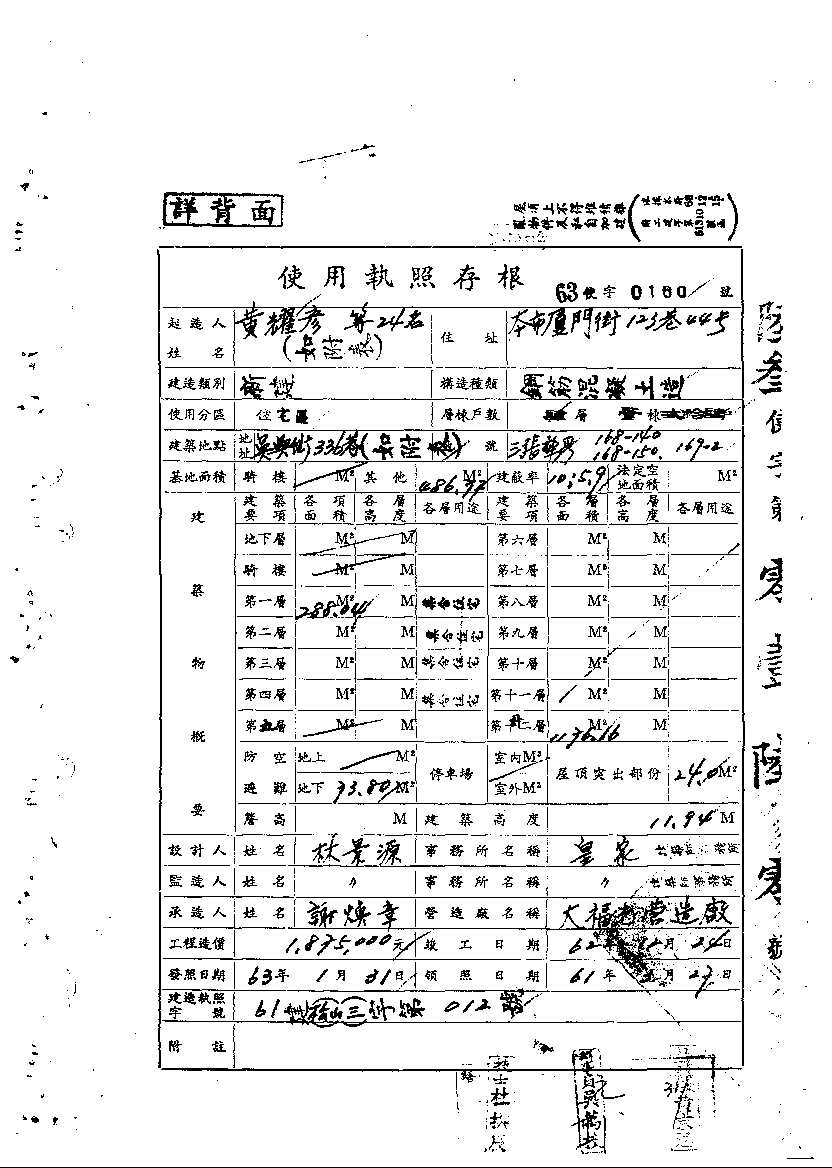 詳背面
使用執照存根 63使字0160號
起造人姓名 黃耀彥 等24名 (如附表) 住址 本市廈門街123巷44号
建造類別 新建 構造種類 鋼筋混凝土造
使用分區 住宅區 層棟戶數 層 棟
建築地點 地址 吳興街336巷(如附表) 號 三張犁段 168-140 168-150. 169-2
基地面積 騎樓 M² 其他 486.97 M² 建蔽率 10:5.9 法定空地面積 M²
建築物概要 建築要項 各項面積 各層高度 各層用途 建築要項 各層面積 各層高度 各層用途
地下層 M² M 第六層 M² M
騎樓 M² M 第七層 M² M
第一層 288.04 M² M 集合住宅 第八層 M² M
第二層 M² M 集合住宅 第九層 M² M
第三層 M² M 集合住宅 第十層 M² M
第四層 M² M 集合住宅 第十一層 M² M
第五層 M² M 第十二層 1136.16 M² M
防空避難 地上 M² 停車場 室內M² 屋頂突出部份 24.0 M²
地下 93.80 M² 室外M²
簷高 M 建築高度 11.94 M
設計人 姓名 林景源 事務所名稱 皇家
監造人 姓名 〃 事務所名稱 〃
承造人 姓名 謝煥章 營造廠名稱 大福 營造廠
工程造價 1,875,000元 竣工日期 62年12月24日
發照日期 63年1月31日 領照日期 61年 月27日
建造執照字號 61 建 松山 三 字第 012 號
附註
陸叁使字第零壹陸零號